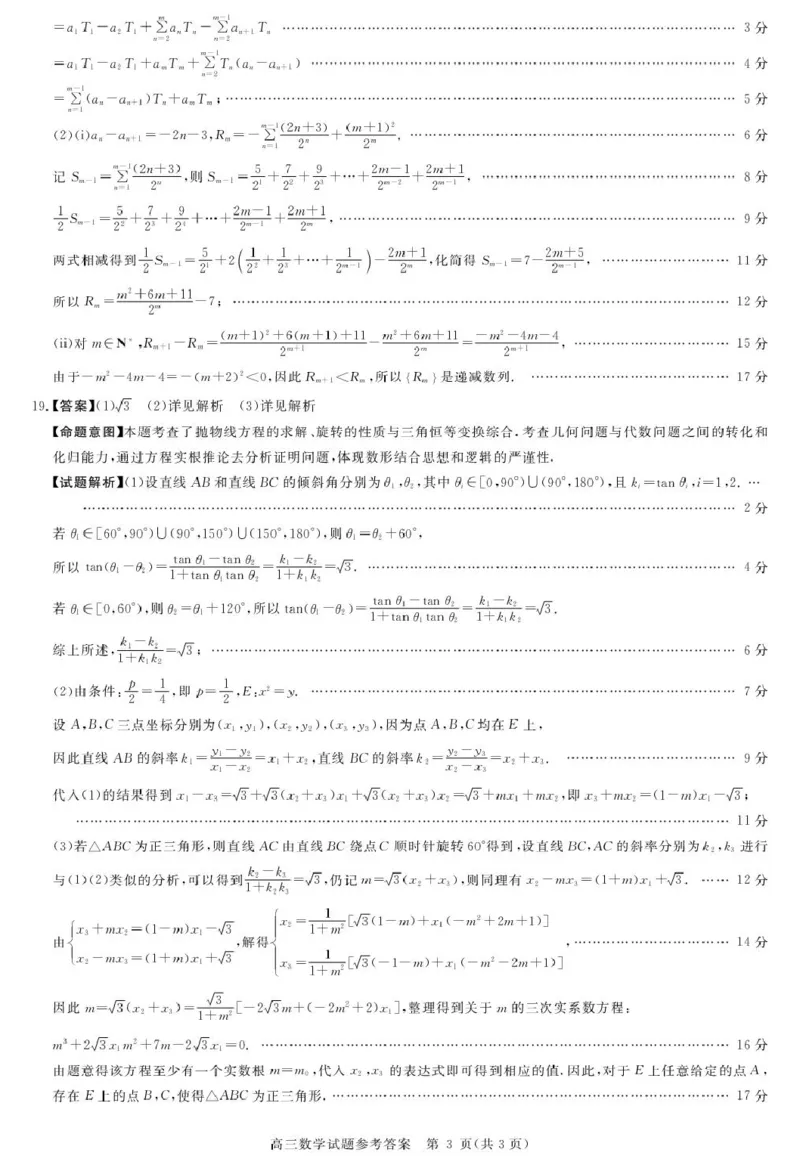 =a₁T₁-a₂T₁+∑_{n=2}^{m}aₙTₙ-∑_{n=2}^{m-1}aₙ₊₁Tₙ …… 3 分
=a₁T₁-a₂T₁+aₘTₘ+∑_{n=2}^{m-1}Tₙ(aₙ-aₙ₊₁) …… 4 分
=∑_{n=1}^{m-1}(aₙ-aₙ₊₁)Tₙ+aₘTₘ; …… 5 分
(2)(i)aₙ-aₙ₊₁=-2n-3,Rₘ=-∑_{n=1}^{m-1}(2n+3)/2ⁿ+(m+1)²/2ᵐ, …… 6 分
记 Sₘ₋₁=∑_{n=1}^{m-1}(2n+3)/2ⁿ,则 Sₘ₋₁=5/2¹+7/2²+9/2³+⋯+(2m-1)/2^{m-2}+(2m+1)/2^{m-1}, …… 8 分
1/2 Sₘ₋₁=5/2²+7/2³+9/2⁴+⋯+(2m-1)/2^{m-1}+(2m+1)/2ᵐ, …… 9 分
两式相减得到 1/2 Sₘ₋₁=5/2¹+2(1/2²+1/2³+⋯+1/2^{m-1})-(2m+1)/2ᵐ,化简得 Sₘ₋₁=7-(2m+5)/2^{m-1}, …… 11 分
所以 Rₘ=(m²+6m+11)/2ᵐ-7; …… 12 分
(ii)对 m∈N*,Rₘ₊₁-Rₘ=((m+1)²+6(m+1)+11)/2^{m+1}-(m²+6m+11)/2ᵐ=(-m²-4m-4)/2^{m+1}, …… 15 分
由于-m²-4m-4=-(m+2)²<0,因此 Rₘ₊₁<Rₘ,所以{Rₘ}是递减数列. …… 17 分
19.【答案】(1)√3 (2)详见解析 (3)详见解析
【命题意图】本题考查了抛物线方程的求解、旋转的性质与三角恒等变换综合.考查几何问题与代数问题之间的转化和
化归能力,通过方程实根推论去分析证明问题,体现数形结合思想和逻辑的严谨性.
【试题解析】(1)设直线 AB 和直线 BC 的倾斜角分别为 θ₁,θ₂,其中 θᵢ∈[0,90°)∪(90°,180°),且 kᵢ=tan θᵢ,i=1,2. …
…… 2 分
若 θ₁∈[60°,90°)∪(90°,150°)∪(150°,180°),则 θ₁=θ₂+60°,
所以 tan(θ₁-θ₂)=(tan θ₁-tan θ₂)/(1+tan θ₁tan θ₂)=(k₁-k₂)/(1+k₁k₂)=√3. …… 4 分
若 θ₁∈[0,60°),则 θ₂=θ₁+120°,所以 tan(θ₁-θ₂)=(tan θ₁-tan θ₂)/(1+tan θ₁tan θ₂)=(k₁-k₂)/(1+k₁k₂)=√3.
综上所述,(k₁-k₂)/(1+k₁k₂)=√3; …… 6 分
(2)由条件:p/2=1/4,即 p=1/2,E:x²=y. …… 7 分
设 A,B,C 三点坐标分别为(x₁,y₁),(x₂,y₂),(x₃,y₃),因为点 A,B,C 均在 E 上,
因此直线 AB 的斜率 k₁=(y₁-y₂)/(x₁-x₂)=x₁+x₂,直线 BC 的斜率 k₂=(y₂-y₃)/(x₂-x₃)=x₂+x₃. …… 9 分
代入(1)的结果得到 x₁-x₃=√3+√3(x₂+x₃)x₁+√3(x₂+x₃)x₂=√3+mx₁+mx₂,即 x₃+mx₂=(1-m)x₁-√3;
…… 11 分
(3)若△ABC 为正三角形,则直线 AC 由直线 BC 绕点 C 顺时针旋转 60°得到,设直线 BC,AC 的斜率分别为 k₂,k₃ 进行
与(1)(2)类似的分析,可以得到(k₂-k₃)/(1+k₂k₃)=√3,仍记 m=√3(x₂+x₃),则同理有 x₂-mx₃=(1+m)x₁+√3. …… 12 分
由{x₃+mx₂=(1-m)x₁-√3 x₂-mx₃=(1+m)x₁+√3,解得{x₂=1/(1+m²)[√3(1-m)+x₁(-m²+2m+1)] x₃=1/(1+m²)[√3(-1-m)+x₁(-m²-2m+1)], …… 14 分
因此 m=√3(x₂+x₃)=√3/(1+m²)[-2√3m+(-2m²+2)x₁],整理得到关于 m 的三次实系数方程:
m³+2√3x₁m²+7m-2√3x₁=0. …… 16 分
由题意得该方程至少有一个实数根 m=m₀,代入 x₂,x₃ 的表达式即可得到相应的值.因此,对于 E 上任意给定的点 A,
存在 E 上的点 B,C,使得△ABC 为正三角形. …… 17 分
高三数学试题参考答案 第 3 页(共 3 页)